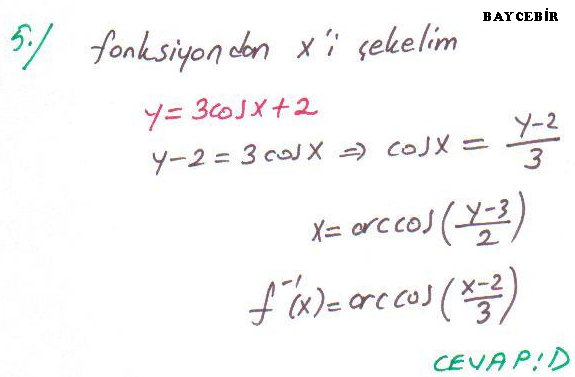 BAYCEBİR
5./ fonksiyondan x'i çekelim
y = 3cosx + 2
y - 2 = 3cosx ⇒ cosx = (y-2)/3
x = arccos((y-3)/2)
f⁻¹(x) = arccos((x-2)/3)
CEVAP: D